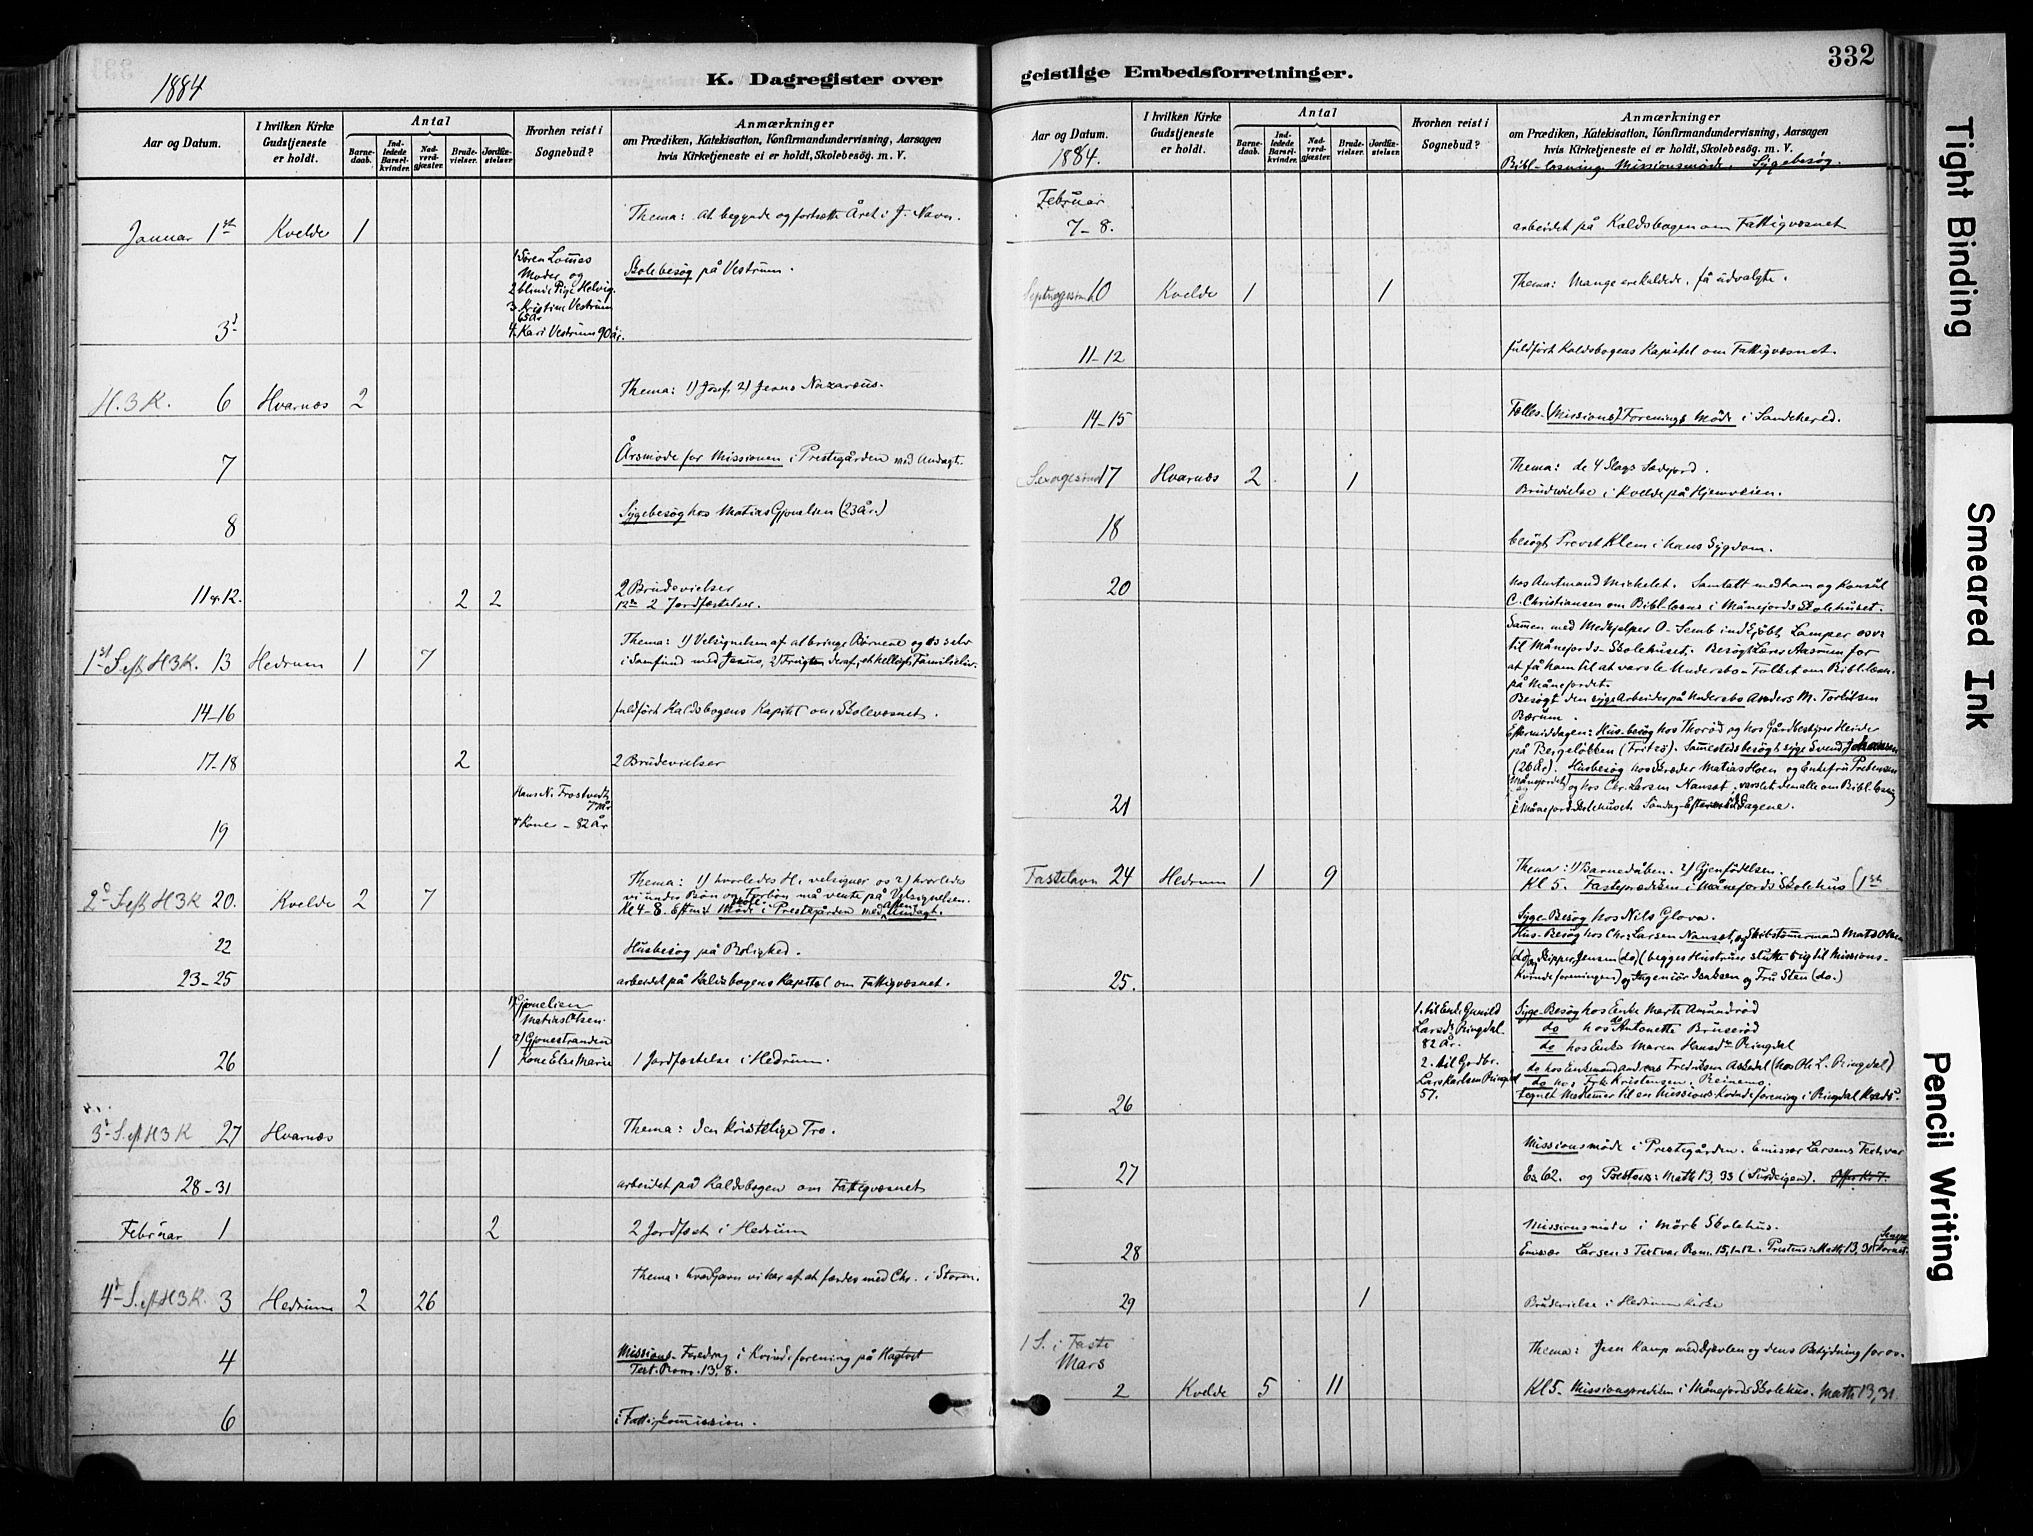 1884
K. Dagregister over
Aar og Datum.
I hvilken Kirke
Gudstjeneste
er holdt.
Antal
Barne-
daab.
Ind-
ledede
Barsel-
kvinder.
Nad-
verd-
gjæster.
Brude-
vielser.
Jordfæ-
stelser.
Hvorhen reist i
Sognebud?
Anmærkninger
om Prædiken, Katekisation, Konfirmandundervisning, Aarsagen
hvis Kirketjeneste ei er holdt, Skolebesög. m. V.
Januar 1st Kvelde 1 Thema: at begynde og fortsætte Året i J. Navn.
1 Sören Moder og
2 blinde Pige Helvig.
3. Kristine Vestrum
65 År
4. Kari Vestrum 90 år.
3d Skolebesøg på Vestrum.
H. 3 K. 6 Hvarnæs 2 Thema: 1) Josef, 2) Jesus Nazaræus.
7 Årsmöde for Missionen i Prestegården med Andagt.
8 Sygebesøg hos Matias Gjonelien (23 år.)
11 og 12. 2 2 2 Brudevielser
12te 2 Jordfæstelser.
1st S. eft H3K. 13 Hedrum 1 7 Thema: 1) Velsignelsen af at bringe Börnene og os selv
i Samfund med Jesus, 2) Frugten deraf, et helligt Familieliv.
14-16 fuldfört Kaldsbogens Kapitel om Skolevæsnet.
17-18 2 2 Brudevielser
19 Hans N. Frostvedt
+ Kone - 82 År
2d S. eft H3K 20. Kvelde 2 7 Thema: 1) hvorledes H. velsigner os 2) hvorledes
vi under Bön og Forbön må vente på Velsignelsen.
Kl 4-8. Efterm. Möde i Prestegården med Aften Andagt.
22 Husbesøg på Bolighed.
23-25 arbeidet på Kaldsbogens Kapitel om Fattigvæsnet.
1) Gjonelien
Matias Olsen.
2) Gjonestranden
Kone Else Marie
26 1 1 Jordfæstelse i Hedrum.
3d S. eft H3K 27 Hvarnæs Thema: den kristelige Tro.
28-31 arbeidet på Kaldsbogen om Fattigvæsnet
Februar 1 2 2 Jordfæst i Hedrum
4d S. eft H3K. 3 Hedrum 2 26 Thema: hvad Gavn vi har af at færdes med Chr. i Storm.
4 Missions-Foredrag i Kvindeforening på Hagtvet
Text. Rom. 13, 8.
6 i Fattigkommission.
geistlige Embedsforretninger.
332
Aar og Datum.
1884.
I hvilken Kirke
Gudstjeneste
er holdt.
Antal
Barne-
daab.
Ind-
ledede
Barsel-
kvinder.
Nad-
verd-
gjæster.
Brude-
vielser.
Jordfæ-
stelser.
Hvorhen reist i
Sognebud?
Anmærkninger
om Prædiken, Katekisation, Konfirmandundervisning, Aarsagen
hvis Kirketjeneste ei er holdt, Skolebesög. m. V.
Bibl-læsning. Missionsmöde. Sygebesög.
Februar
7-8. arbeidet på Kaldsbogen om Fattigvæsnet
Septuagesima 10 Kvelde 1 1 Thema: Mange ere kaldede, få udvalgte.
11-12 fuldfört Kaldsbogens Kapitel om Fattigvæsnet.
14-15 Fælles-(Missions)-Forenings Möde i Sandeherred.
Sexagesima 17 Hvarnæs 2 1 Thema: de 4 Slags Sædejord.
Brudevielse i Kvelde på Hjemveien.
18 besögt Provst Klem i hans Sygdom.
20 hos Amtmand Michelet. Samtalt med ham og Konsul
C. Christiansen om Bibl-læsn i Månejords Skolehuset.
Sammen med Medhjelper O. Semb indkjöbt Lamper osv.
til Månejords-Skolehuset. Besögt Lærer Aasrum for
at få ham til at varsle Undersbo-Folket om Bibl.læsn.
på Månejordet.
Besögt den syge Arbeider på Undersbo Anders M. Torbilsen
Bærum.
Eftermiddagen: Hus-besøg hos Thorød og hos Gårdbestyrer Heider
på Bergeløbben (Fritzö). Sammesteds besögt syge Svend Johansen
(26 År). Husbesøg hos Skræder Matias Hoen og Enkefru Pedersen
(Månejordet) og hos Chr. Larsen Nanset, varslet dem alle om Bibl.læsning
21 i Månejord-Skolehuset Söndag-Eftermiddagene.
Fastelavn 24 Hedrum 1 9 Thema: 1) Barnedåben. 2) Gjenfödelsen.
Kl 5. Fasteprædiken i Månejords Skolehus (1ste
Syge-Besøg hos Nils Glova.
Hus-Besøg hos Chr. Larsen Nanset, og Skibstömmermand Mats Olsen
(do) og Skipper Jensen (do) (begges Hustruer slutte sig til Missions-
Kvindeforeningen) og Ingeniör Isaksen og Fru Sten (do.)
25.
1. til Enk. Gunild
Larsdr Ringdal
82 År.
2. til Gardbr.
Lars Karlsen Ringdal
57.
Syge-Besøg hos Enke Marte Amundröd
do hos do Antonette Bruseröd
do hos Enke Maren Hansdr Ringdal
do hos Enkemand Andreas Fredriksen Askedal (hos Ole L. Ringdal)
do hos Kristensen. Reinemo.
26 tegnet Medlemmer til en Missions Kvindeforening i Ringdal Kreds.
27 Missionsmöde i Prestegården. Emissær Larsens Text var
Es. 62. og Prestens: Math 13, 33 (Surdeigen). Offer Kr 7.
28 Missionsmöde i Mörk Skolehus.
Emissær Larsens Text var Rom. 15, 1-12. Prestens: Math 13, 31 (Senneps-
kornet.
29 1 Brudevielse i Hedrum Kirke
1 S. i Faste
Mars
2 Kvelde 5 11 Thema: Jesu Kamp med Djevlen og dens Betydning for os.
Kl 5. Missionsprediken i Månejords Skolehus. Math 13, 31.
Tight Binding
Smeared Ink
Pencil Writing